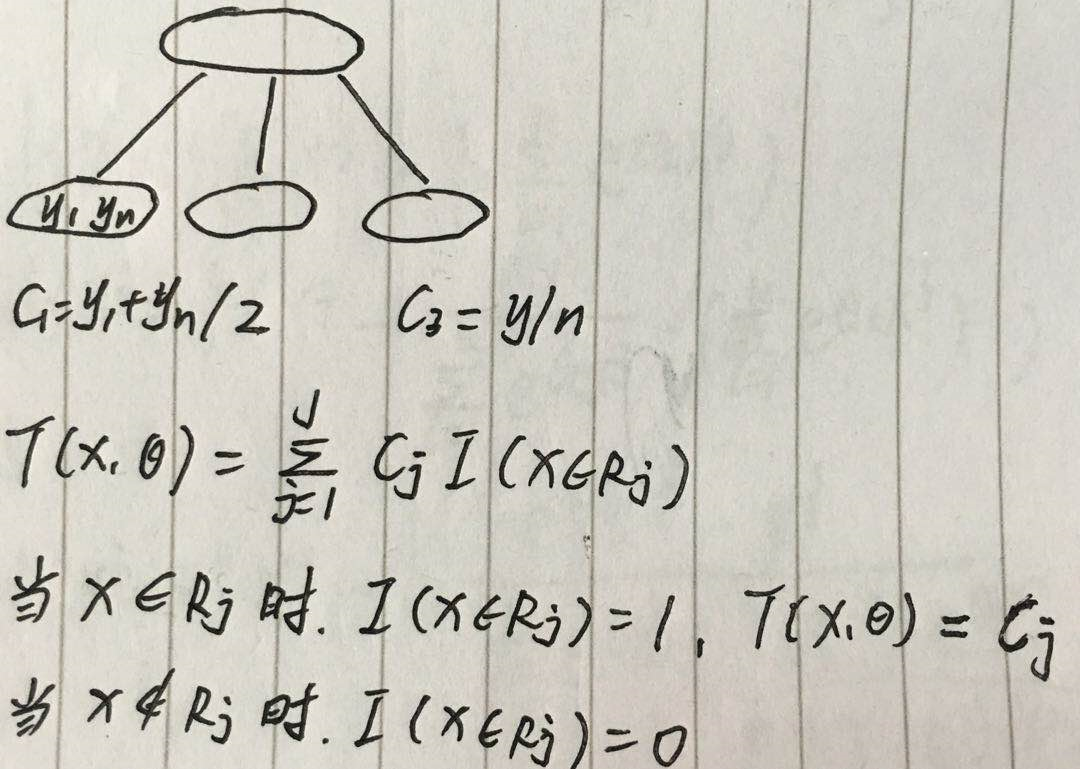 y₁ yₙ
C₁=y₁+yₙ/2 C₃=y/n
T(x, θ) = J∑j=1 Cj I (x∈Rj)
当 x∈Rj 时. I(x∈Rj)=1, T(x,θ)=Cj
当 x∉Rj 时. I(x∈Rj)=0